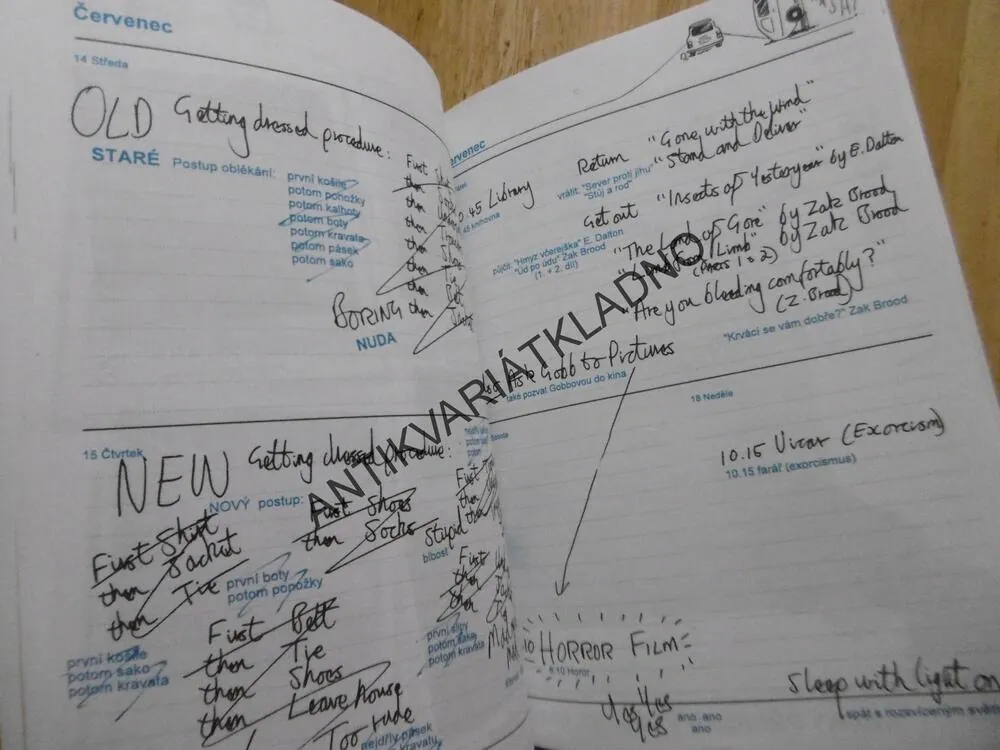 Červenec
14 Středa
OLD Getting dressed procedure:
STARÉ Postup oblékání:
první košile
potom ponožky
potom kalhoty
potom boty
potom kravata
potom pásek
potom sako
First
then
then
then
then
then
then
BORING
NUDA
15 Čtvrtek
NEW Getting dressed procedure:
NOVÝ postup:
First Shirt
then Jacket
then Tie
první košile
potom sako
potom kravata
First Shoes
then Socks
první boty
potom popožky
Stupid
blbost
First Belt
then Tie
then Shoes
then Leave house
Too rude
nejdřív pásek
First
then
then
First
then
první slipy
potom sako
potom kravata
ervenec
45 Library
45 knihovna
Return "Gone with the Wind"
"Stand and Deliver"
vrátit: "Sever proti jihu"
"Stůj a rod"
Get out "Insects of Yesteryear" by E. Dalton
"The Limb of Gore" by Zak Brood
by Zak Brood
(Parts 1 + 2)
půjčit: "Hmyz včerejška" E. Dalton
"Úd po údu" Zak Brood
(1. + 2. díl)
"Are you bleeding comfortably?"
(Z. Brood)
"Krvácí se vám dobře?" Zak Brood
Ask Gobb to Pictures
také pozvat Gobbovou do kina
18 Neděle
10.15 Vicar (Exorcism)
10.15 farář (exorcismus)
HORROR FILM
Yes Yes
Yes
ano, ano
ano
Sleep with light on
spát s rozsvíceným světl
ANTIKVARIÁTKLADNO